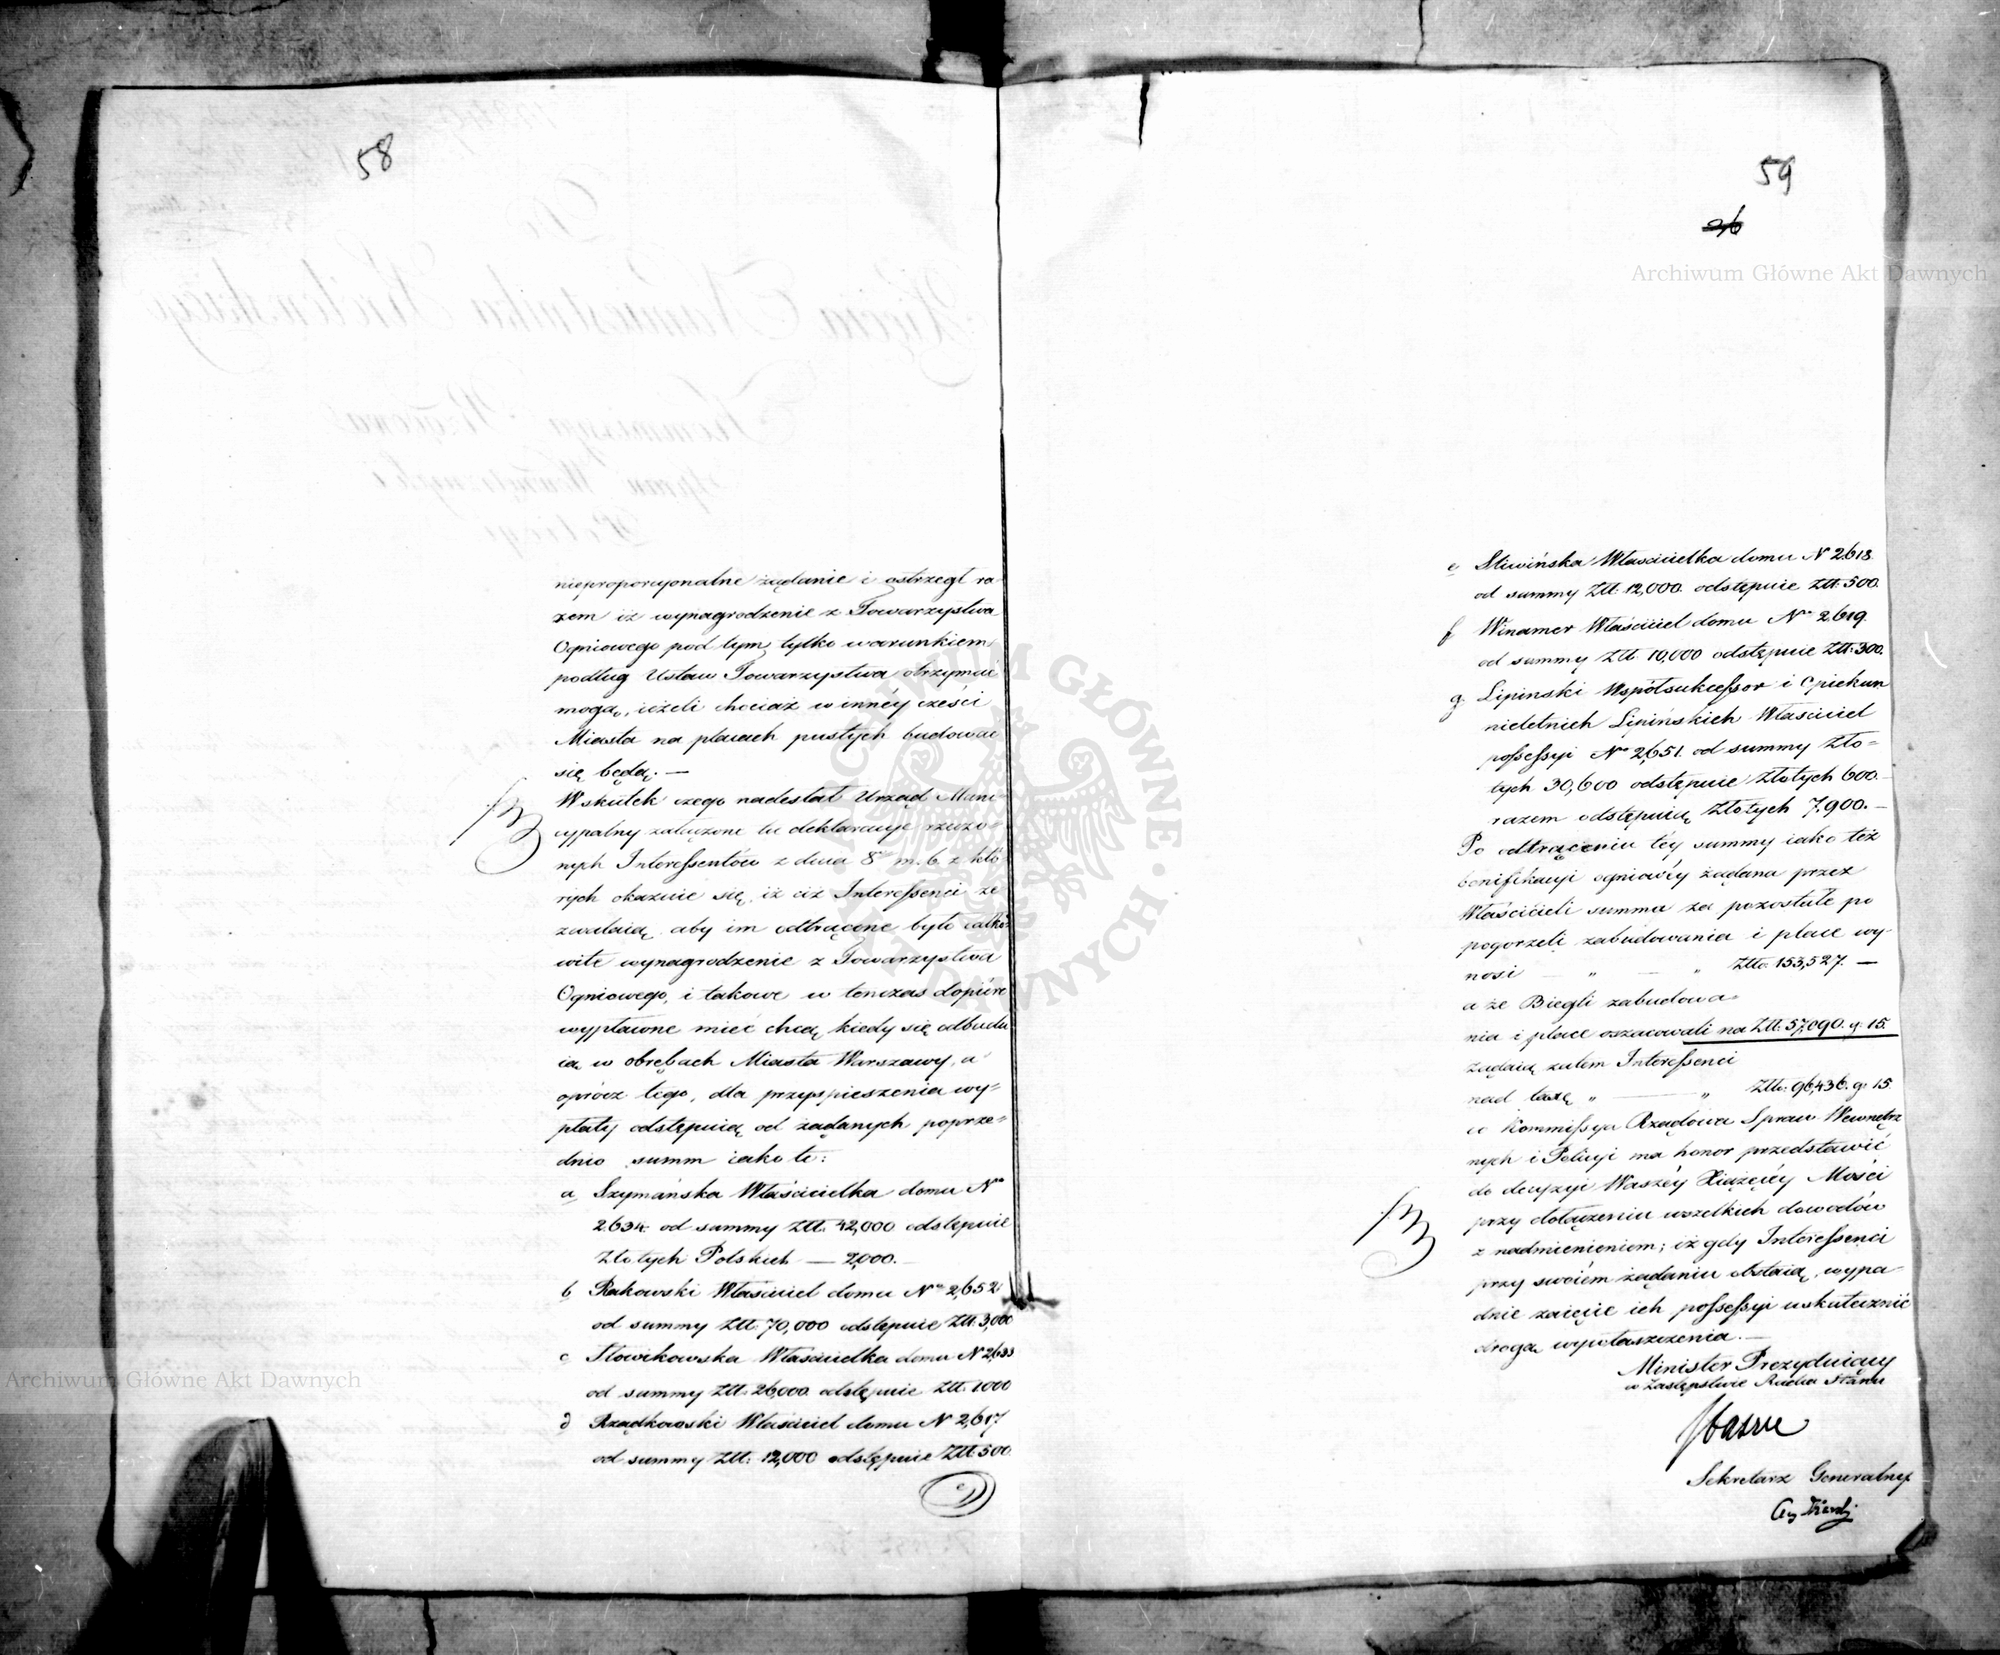 58
nieproporcyonalne żądanie i ostrzegł ra
zem iż wynagrodzenie z Towarzystwa
Ogniowego pod tym tylko warunkiem
podług Ustaw Towarzystwa otrzymać
mogą, ieżeli chociaż w innéy części
Miasta na placach pustych budować
się będą. —
Wskutek czego nadesłał Urząd Muni-
cypalny załączone tu deklaracye rzeczo-
nych Interessentów z dnia 8 m. b. z któ
rych okazuie się, iż ciż Interessenci ze
zwalaią aby im odtrącone było całko
wite wynagrodzenie z Towarzystwa
Ogniowego, i takowe w tenczas dopiéro
wypłacone mieć chcą kiedy się odbudu
ią w obrębach Miasta Warszawy, a
oprócz tego, dla przyspieszenia wy-
płaty odstępuią od żądanych poprze-
dnio summ iako to:
a Szymańska Właścicielka domu No
2634. od summy Ztt. 42,000 odstępuie
Złotych Polskich — 2,000.
b Rakowski Właściciel domu No 2,652
od summy Ztt. 70,000 odstępuie Ztt. 3,000
c Słowikowska Właścicielka domu N 2,633
od summy Ztt. 26,000. odstępuie Ztt. 1000
d Rządkowski Właściciel domu N 2,617
od summy Ztt. 12,000 odstępuie Ztt. 500.
59
26
e Sliwińska Właścicielka domu N 2618.
od summy Ztt. 12,000. odstępuie Ztt. 500.
f Winamer Właściciel domu No 2,619.
od summy Ztt. 10,000 odstępuie Ztt. 300.
g Lipinski Współsukcessor i Opiekun
nieletnich Lipińskich Właściciel
possessyi No 2,651. od summy Zło-
tych 30,600 odstępuie Złotych 600.
razem odstępuią Złotych 7,900. —
Po odtrąceniu téy summy iako też
bonifikacyi ogniowéy żądana przez
Właścicieli summa za pozostałe po
pogorzeli zabudowania i place wy-
nosi — „ — „ Ztto. 153,527. —
a że Biegli zabudowa-
nia i place oszacowali na Ztt. 57,090. g. 15.
żądaią zatem Interessenci
nad taxę „ — „ Ztto. 96,436. g. 15
Kommissya Rządowa Spraw Wewnętrz
nych i Policyi ma honor przedstawić
do decyzyi Waszéy Xiążęcéy Mości
przy dołączeniu wszelkich dowodów
z nadmienieniem; iż gdy Interessenci
przy swoiém żądaniu obstaią, wypa-
dnie zaięcie ich possessyi uskutecznić
drogą wywłaszczenia. —
Minister Prezyduiący
w Zastępstwie Radca Stanu
Sekretarz Generalny
Archiwum Główne Akt Dawnych
Archiwum Główne Akt Dawnych
ARCHIWUM GŁÓWNE AKT DAWNYCH